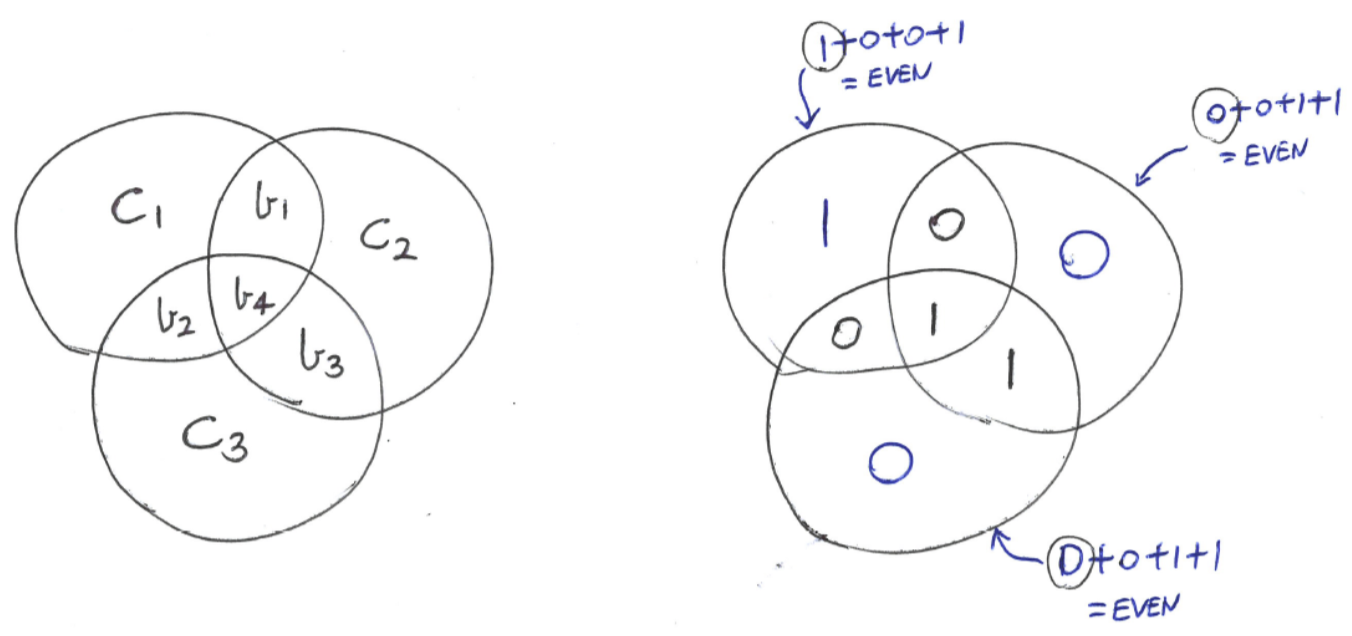 C1
b1
C2
b2
b4
b3
C3
1+0+0+1
= EVEN
0+0+1+1
= EVEN
1
0
0
0
1
1
0
0+0+1+1
= EVEN